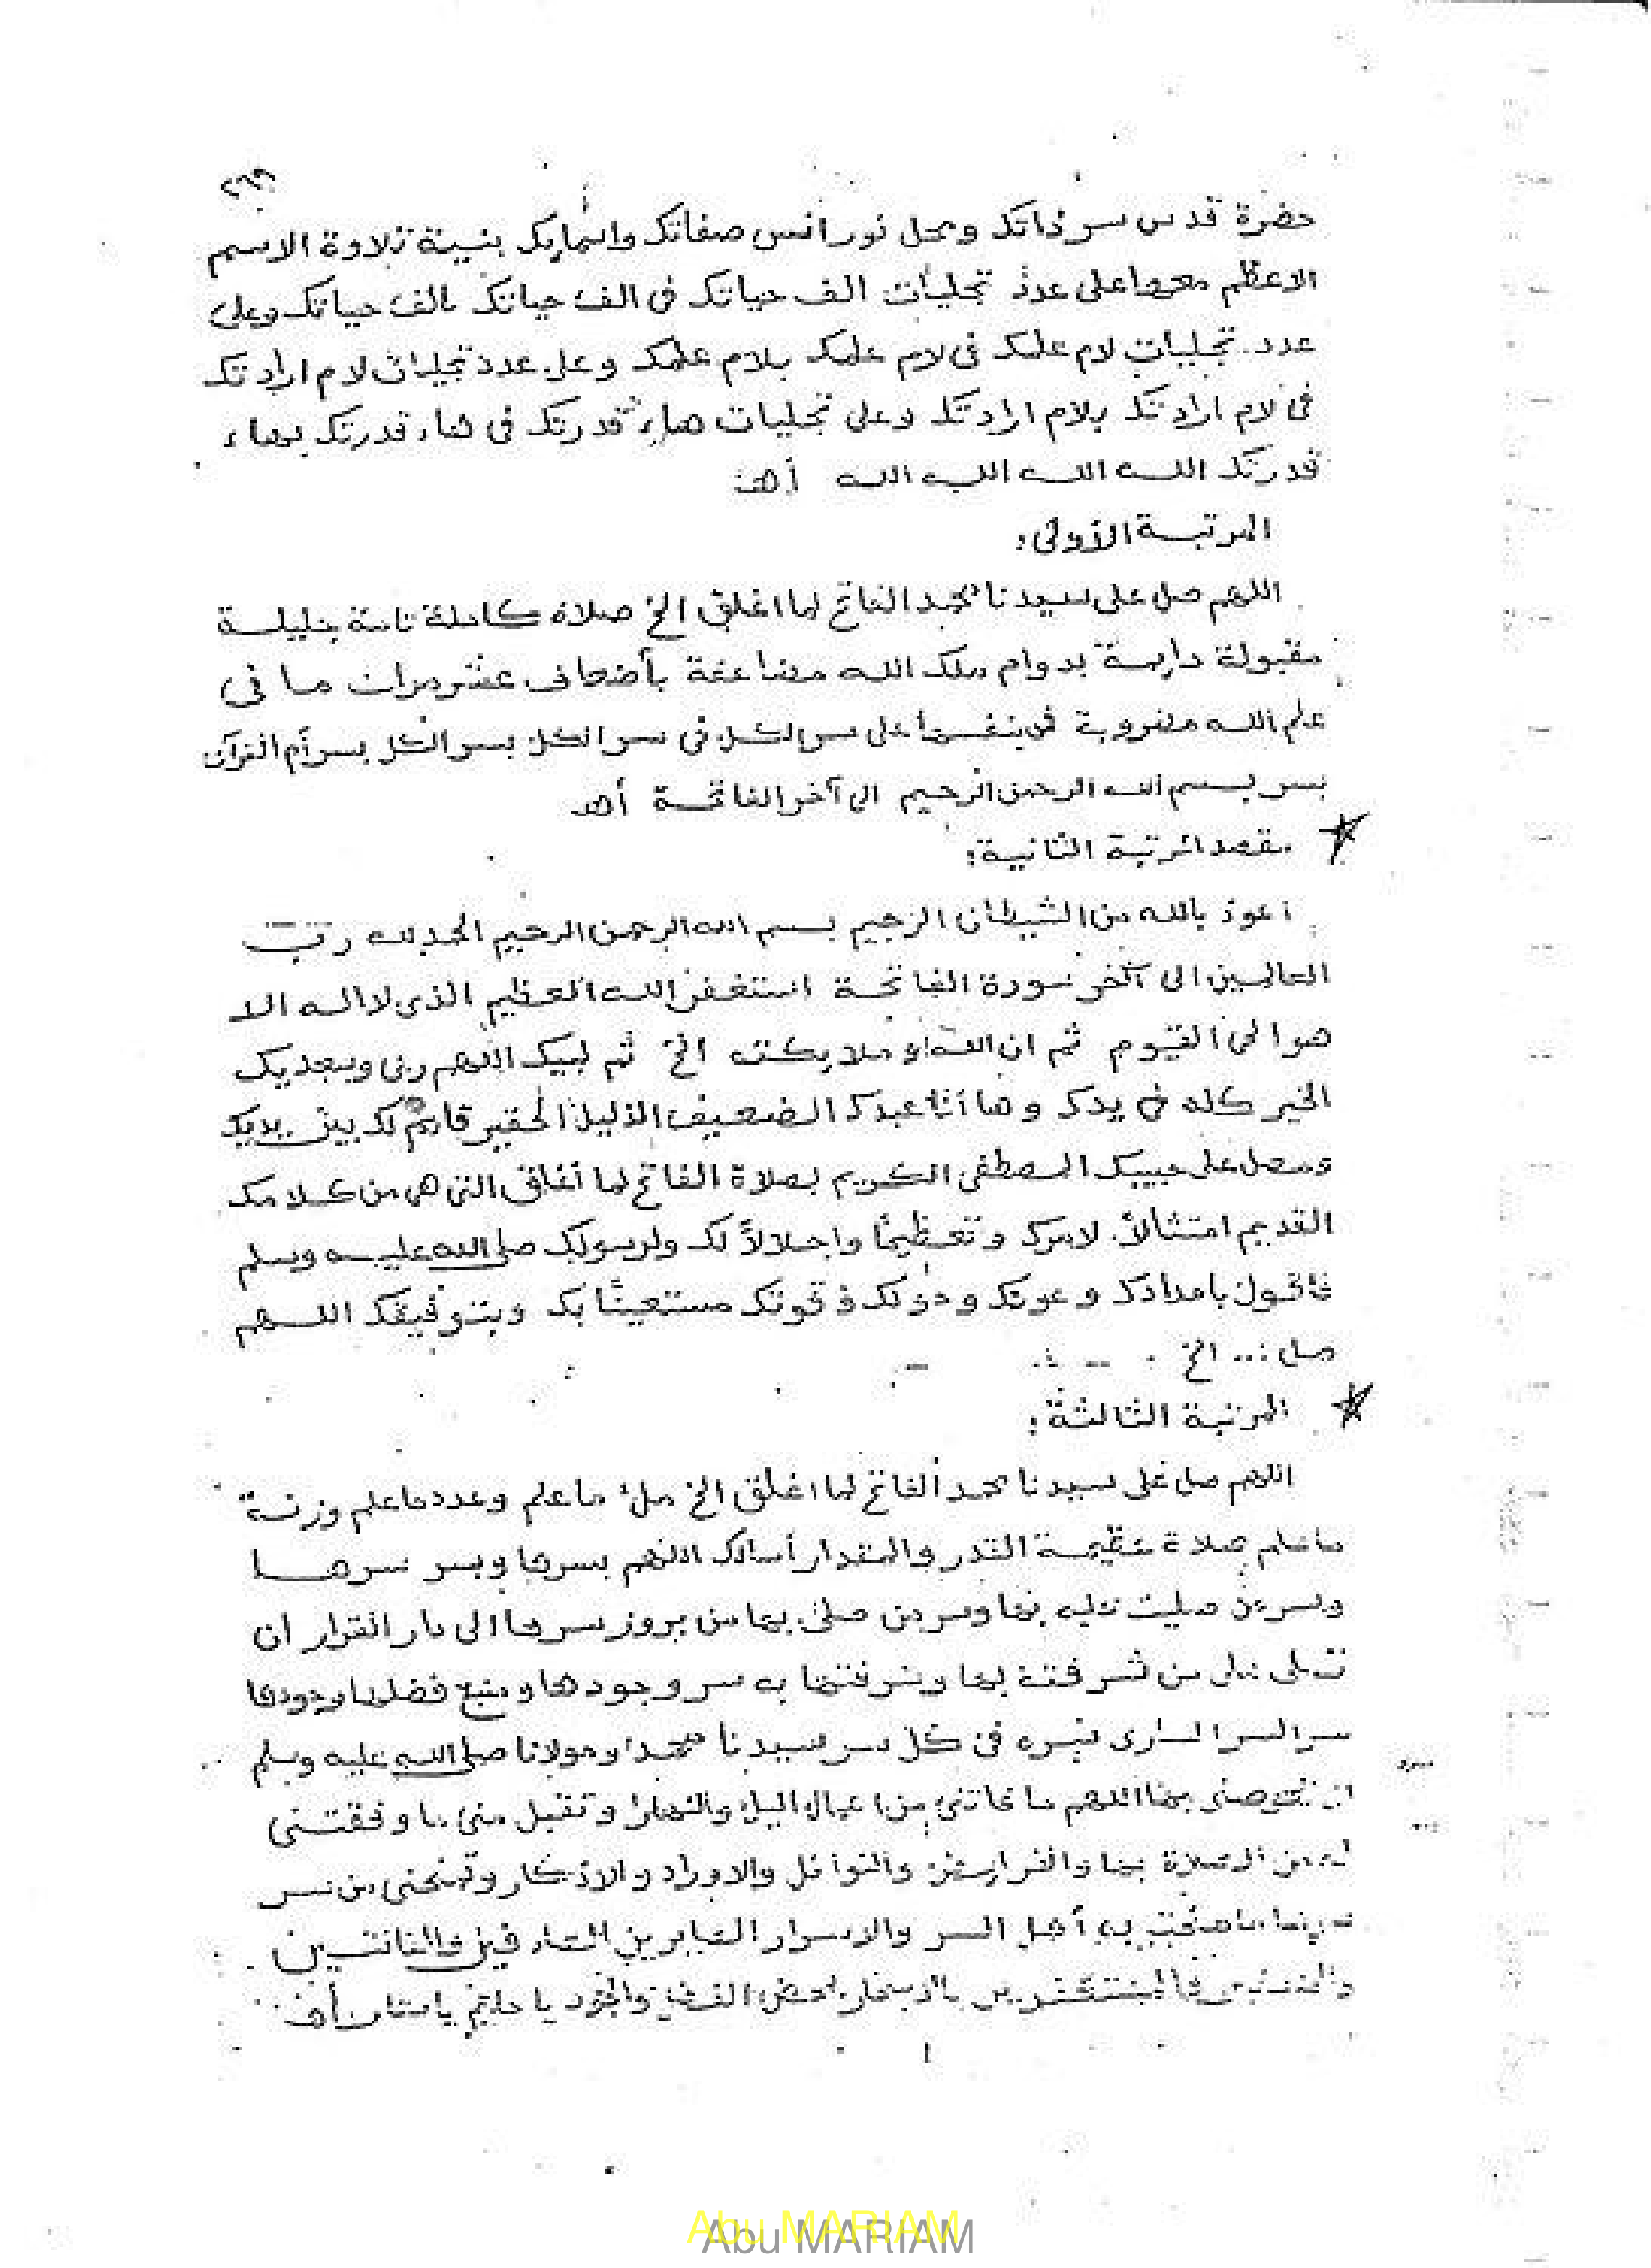 ٢٦٩
حضرة قدس سر ذاتك ومحل نور انس صفاتك واسمايك بنية تلاوة الاسم
الاعظم معها على عدد تجليات الف حياتك فى الف حياتك بالف حياتك وعلى
عدد تجليات لام علمك فى لام علمك بلام علمك وعلى عدد تجليات لام ارادتك
فى لام ارادتك بلام ارادتك وعلى تجليات هاء قدرتك فى هاء قدرتك بهاء
قدرتك الله الله الله الله أهـ
المرتبة الأولى:
اللهم صل على سيدنا محمد الفاتح لما اغلق الخ صلاة كاملة تامة جليلة
مقبولة دايمة بدوام ملك الله مضاعفة بأضعاف عشر مرات ما فى
علم الله مضروبة فى نفسها على سر الكل فى سر الكل بسر الكل بسر أم القرآن
بسر بسم الله الرحمن الرحيم الى آخر الفاتحة أهـ
مقصد المرتبة الثانية:
اعوذ بالله من الشيطان الرجيم بسم الله الرحمن الرحيم الحمد لله رب
العالمين الى آخر سورة الفاتحة استغفر الله العظيم الذى لا اله الا
هو الحى القيوم ثم ان الله وملايكته الخ ثم لبيك اللهم ربى وسعديك
الخير كله فى يدك وها أنا عبدك الضعيف الذليل الحقير قايم لك بين يديك
ومصل على حبيبك المصطفى الكريم بصلاة الفاتح لما أغلق التى هى من كلامك
القديم امتثالاً لامرك وتعظيمًا واجلالاً لك ولرسولك صلى الله عليه وسلم
فاقول بامدادك وعونك وحولك وقوتك مستعينًا بك وبتوفيقك اللهم
صل ... الخ
المرتبة الثالثة:
اللهم صل على سيدنا محمد الفاتح لما اغلق الخ ملء ما علم وعدد ما علم وزنة
ما علم صلاة عظيمة القدر والمقدار أسألك اللهم بسرها وبسر سرها
وبسر من صليت عليه بها وسر من صلى بها من بروز سرها الى دار القرار ان
تصلى على من شرفته بها وشرفتها به سر وجودها ومنبع فضلها وجودها
سر السر السارى سره فى كل سر سيدنا محمد ومولانا صلى الله عليه وسلم
ان تعوضنى بها اللهم ما فاتنى من اعمال الليل والنهار وتتقبل منى ما وفقتنى
له من الصلاة بها والفرايض والنوافل والاوراد والاذكار وتمنحنى من سر
سرها ما منحت به أهل السر والاسرار الصابرين الصادقين والقانتين
والمستغفرين بالاسحار الفضل والجود يا حليم يا ستار أهـ
Abu MARIAM